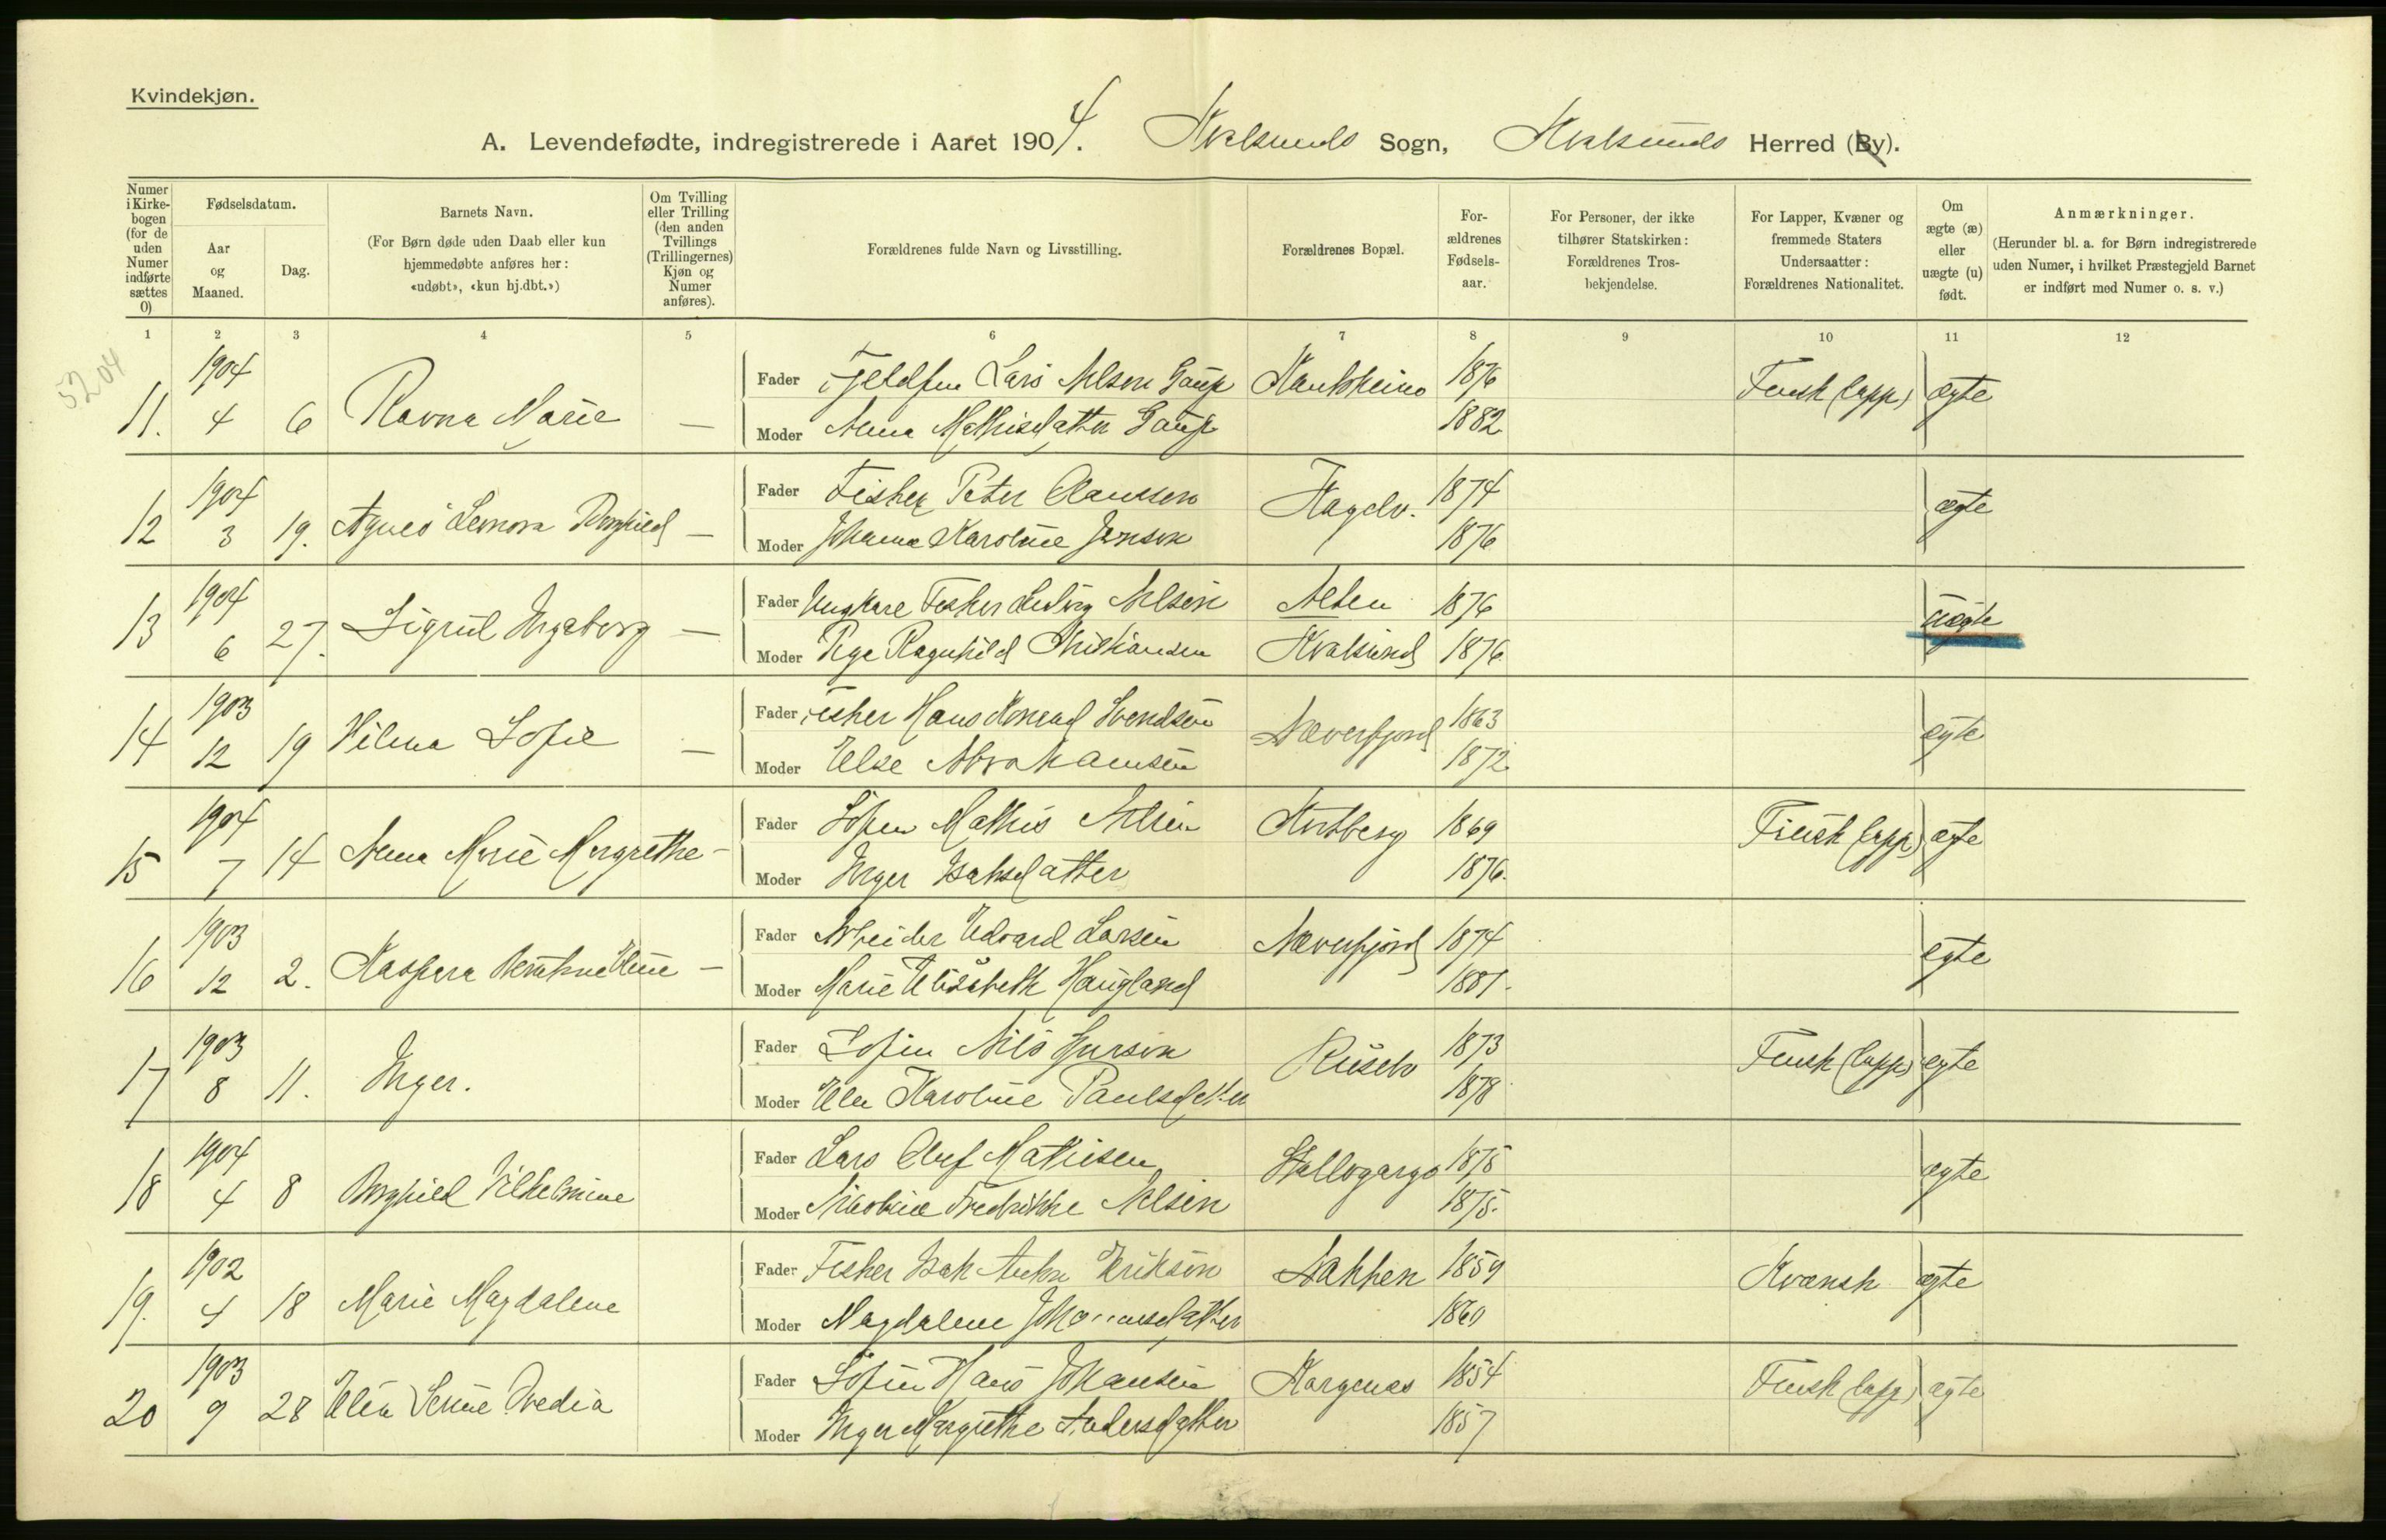 Kvindekjøn.
A. Levendefødte, indregistrerede i Aaret 1904. Kvalsunds Sogn, Kvalsunds Herred (By).
Numer i Kirkebogen (for de uden Numer indførte sættes 0)
Fødselsdatum.
Aar og Maaned.
Dag.
Barnets Navn.
(For Børn døde uden Daab eller kun hjemmedøbte anføres her: «udøbt», «kun hj.dbt.»)
Om Tvilling eller Trilling (den anden Tvillings (Trillingernes) Kjøn og Numer anføres).
Forældrenes fulde Navn og Livsstilling.
Forældrenes Bopæl.
Forældrenes Fødselsaar.
For Personer, der ikke tilhører Statskirken: Forældrenes Trosbekjendelse.
For Lapper, Kvæner og fremmede Staters Undersaatter: Forældrenes Nationalitet.
Om ægte (æ) eller uægte (u) født.
Anmærkninger.
(Herunder bl. a. for Børn indregistrerede uden Numer, i hvilket Præstegjeld Barnet er indført med Numer o. s. v.)
1 2 3 4 5 6 7 8 9 10 11 12
5204
11. 1904 4 6 Ravna Marie —
Fader Fjeldfin Lars Nilsen Gaup Kautokeino 1876 Finsk (lapp) ægte
Moder Anna Mathisdatter Gaup 1882
12 1904 3 19. Agnes Leonora Borghild —
Fader Fisker Peter Claussen 1874 ægte
Moder Johanna Karoline Jensen 1876
13 1904 6 27. Sigrid Ingeborg —
Fader Ungkare Fisker Ludvig Nilsen Alten 1876 uægte
Moder Pige Ragnhild Kristiansen Kvalsund 1876
14 1903 12 19 Hilma Sofie —
Fader Fisker Hans Konrad Svendsen Næverfjord 1863 ægte
Moder Else Abrahamsen 1872
15 1904 7 14 Anna Marie Margrethe —
Fader Søfin Mathis Nilsen Kvitberg 1869 Finsk (lapp) ægte
Moder Inger Isaksdatter 1876.
16 1903 12 2. Kaspara —
Fader Arbeider Edvard Larsen Næverfjord 1874 ægte
Moder Marie Elisabeth Haugland 1881.
17 1903 8 11. Inger.
Fader Søfin Nils 1873 Finsk (lapp) ægte
Moder Elen Karoline Paulsdatter 1878
18 1904 4 8 Borghild Vilhelmine
Fader Lars Oluf Mathisen Stallogargo 1875 ægte
Moder Nikoline Fredrikke Nilsen 1875.
19. 1902 4 18 Marie Magdalene
Fader Fisker Isak Anton Eriksen Bakken 1859 Kvænsk ægte
Moder Magdalene Johannesdatter 1860
20 1903 9 28 Elen
Fader Søfin Hans Johansen Kargenes 1854 Finsk (lapp) ægte
Moder Inger Margrethe Andersdatter 1857